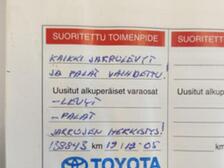 SUORITETTU TOIMENPIDE
KAIKKI JARRULEVYT
JA PALAT VAIHDETTU!
Uusitut alkuperäiset varaosat
- LEVYT
- PALAT
JARRUJEN HERKISTYS!
158843 km 19.12.05
TOYOTA
SUORITETT
Uusitut alkup